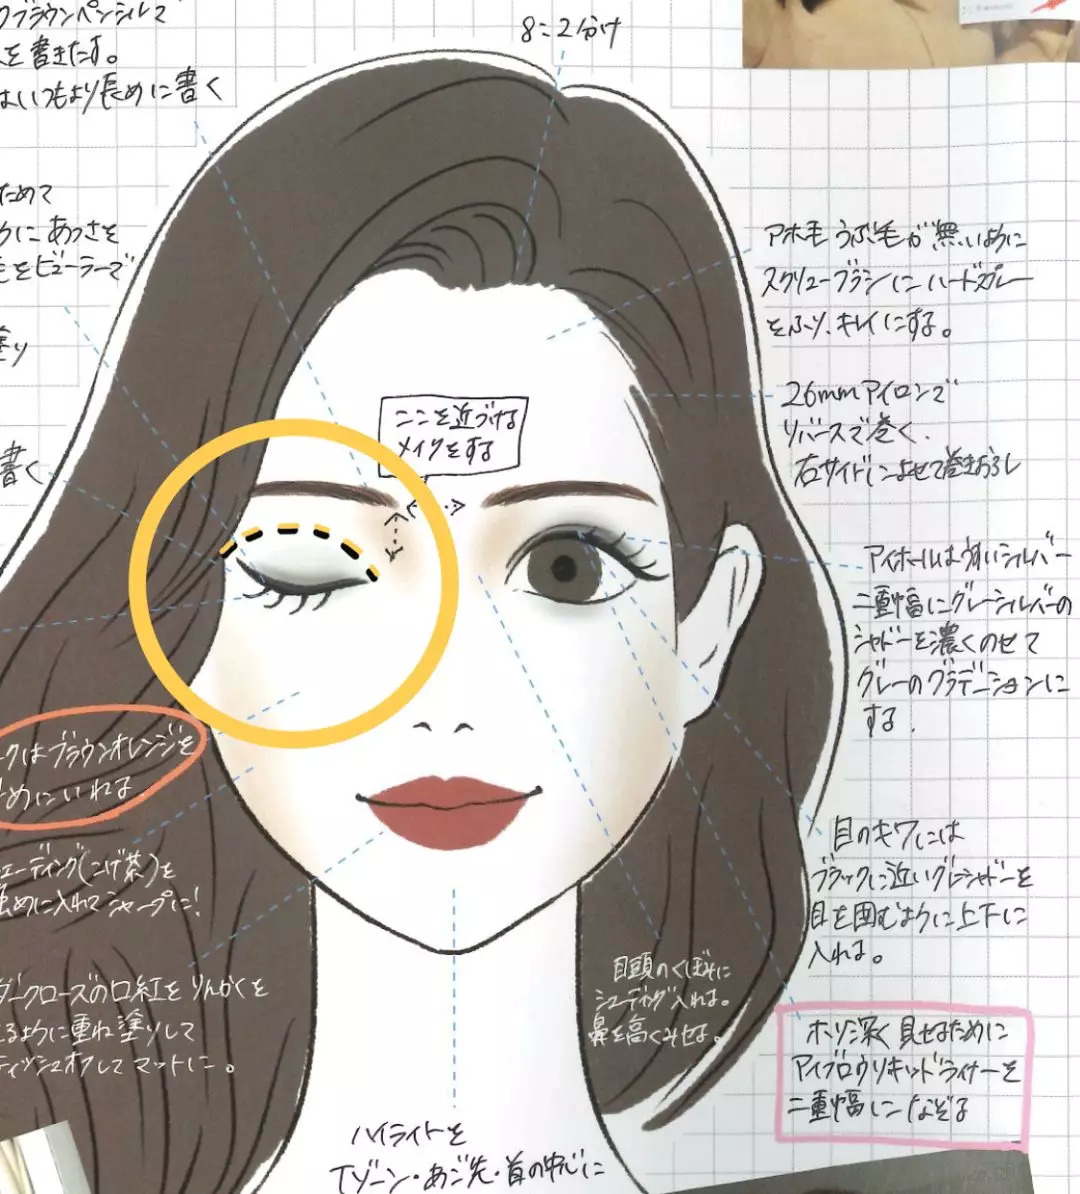 クブラウンペンシルで
を書きたす。
はいつもより長めに書く
8:2分け
ためて
うにあつさを
毛をビューラーで
塗り
書く
ここを近づける
メイクをする
アホ毛 うぶ毛が無いように
スクリューブラシにハードスプレー
をふり、キレイにする。
26mmアイロンで
リバースで巻く.
右サイドによせて巻きおろし
アイホールはうすいシルバー
二重幅にグレーシルバーの
シャドーを濃くのせて
グレーのグラデーションに
する.
ークはブラウンオレンジを
めにいれる.
ェーディング(こげ茶)を
強めに入れてシャープに!
ダークローズの口紅を りんかくを
るように重ね塗りして
ティッシュオフしてマットに。
目のキワには
ブラックに近いグレシャドーを
目を囲むように上下に
入れる。
目頭のくぼみに
シェーディング入れる。
鼻を高くみせる。
ホリ深く見せるために
アイブロウリキッドライナーを
二重幅に なぞる
ハイライトを
Tゾーン・あご先・首の中心に